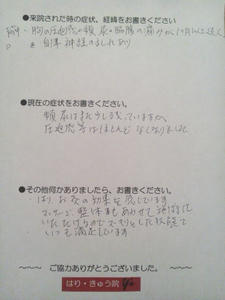 ●来院された時の症状、経緯をお書きください。
胸の圧迫感や頻尿
自律神経のみだれあり
●現在の症状をお書きください。
頻尿はまだ少し残っていますが、
圧迫感等はほとんどなくなりました
●その他何かありましたら、お書きください。
はり、お灸の効果を感じています
マッサージ、整体もあわせて施術
いただけるので
いつも満足しています
〜〜〜ご協力ありがとうございました。〜〜〜
はり・きゅう院